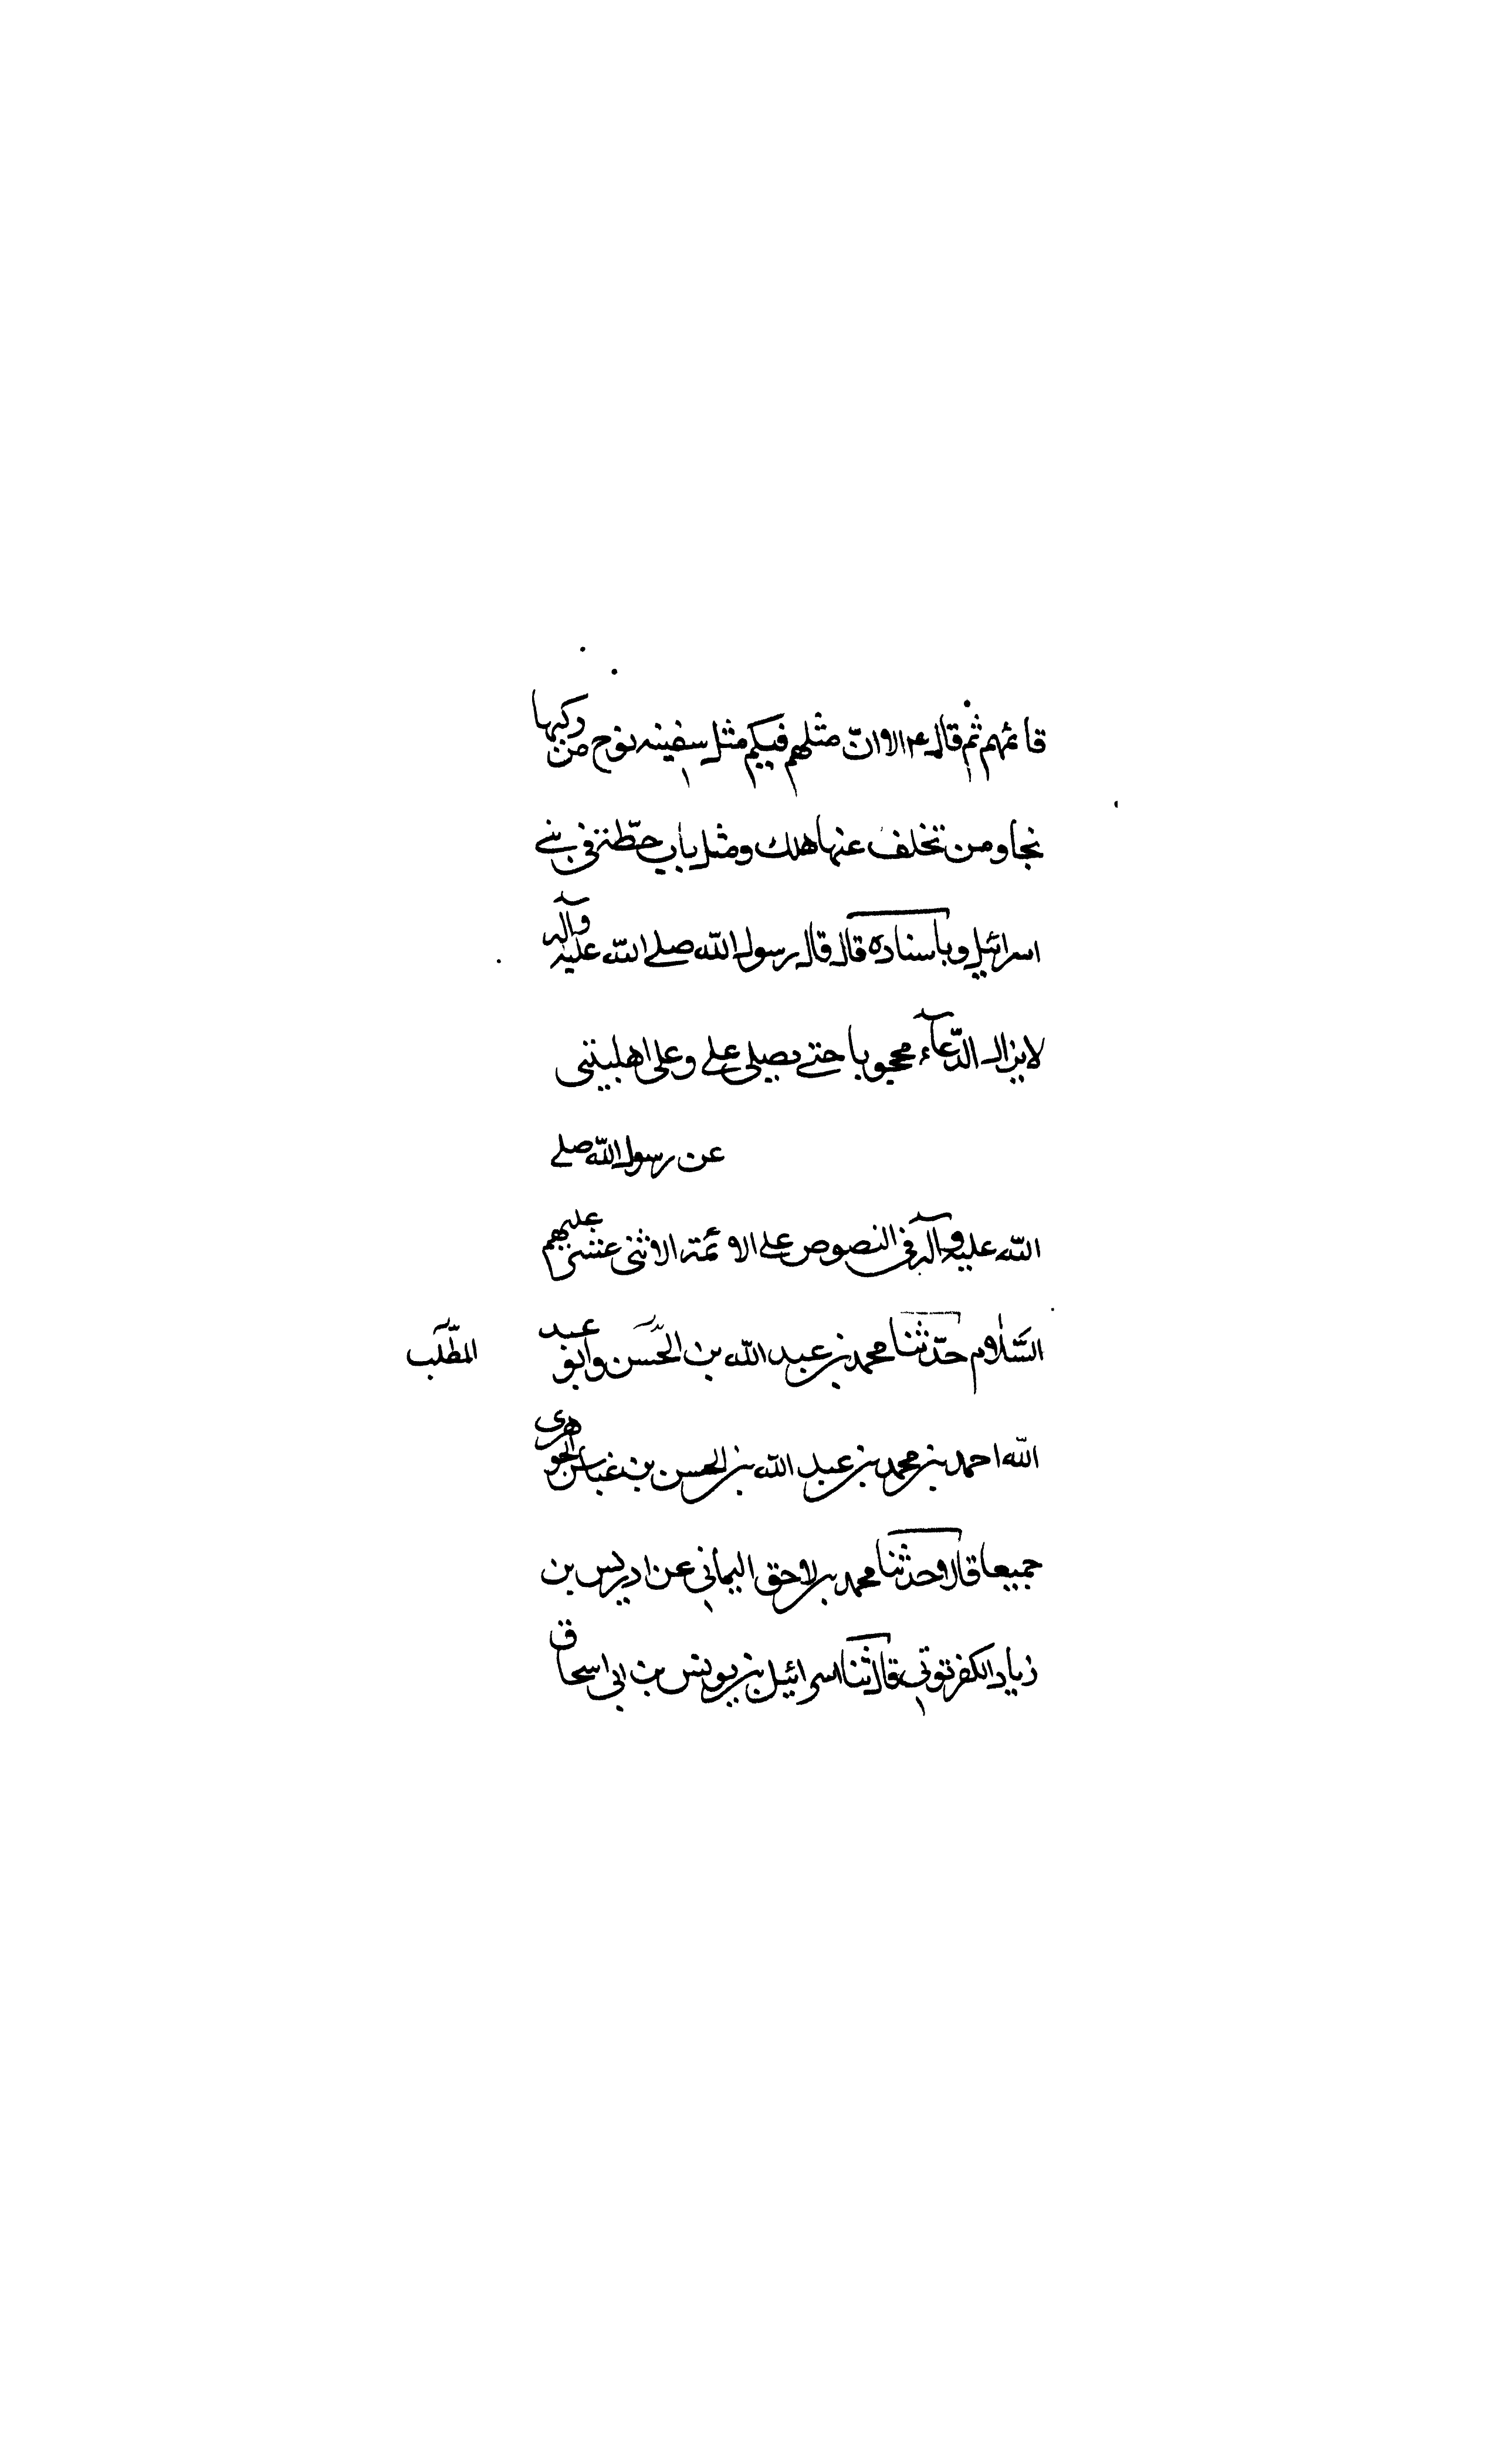 قائمهم ثم قال ع الا وانّ مثلهم فيكم مثل سفينه نوح من ركبها
نجا ومن تخلف عنها هلك ومثل باب حطّة في بني
اسرائيل وباسناده قال قال رسول اللّه صلى اللّه عليه وآله
لا يزال الدّعآء محجوبا حتى يصلى على وعلى اهلبيتى
عن رسول اللّه صلى
اللّه عليه وآله في النصوص على الائمة الاثنى عشر عليهم
السّلام حدّثنا محمد بن عبد اللّه بن الحسن وابو عبد
المطّلب
اللّه احمد بن محمد بن عبد اللّه بن الحسن بن عباس الجوهرى
جميعا قالا حدثنا محمد بن لاحق اليماني عن ادريس بن
زياد الكفرتوثي قال ثنا اسرائيل بن يونس بن ابى اسحاق